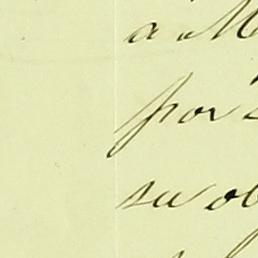 a M
por
su ob